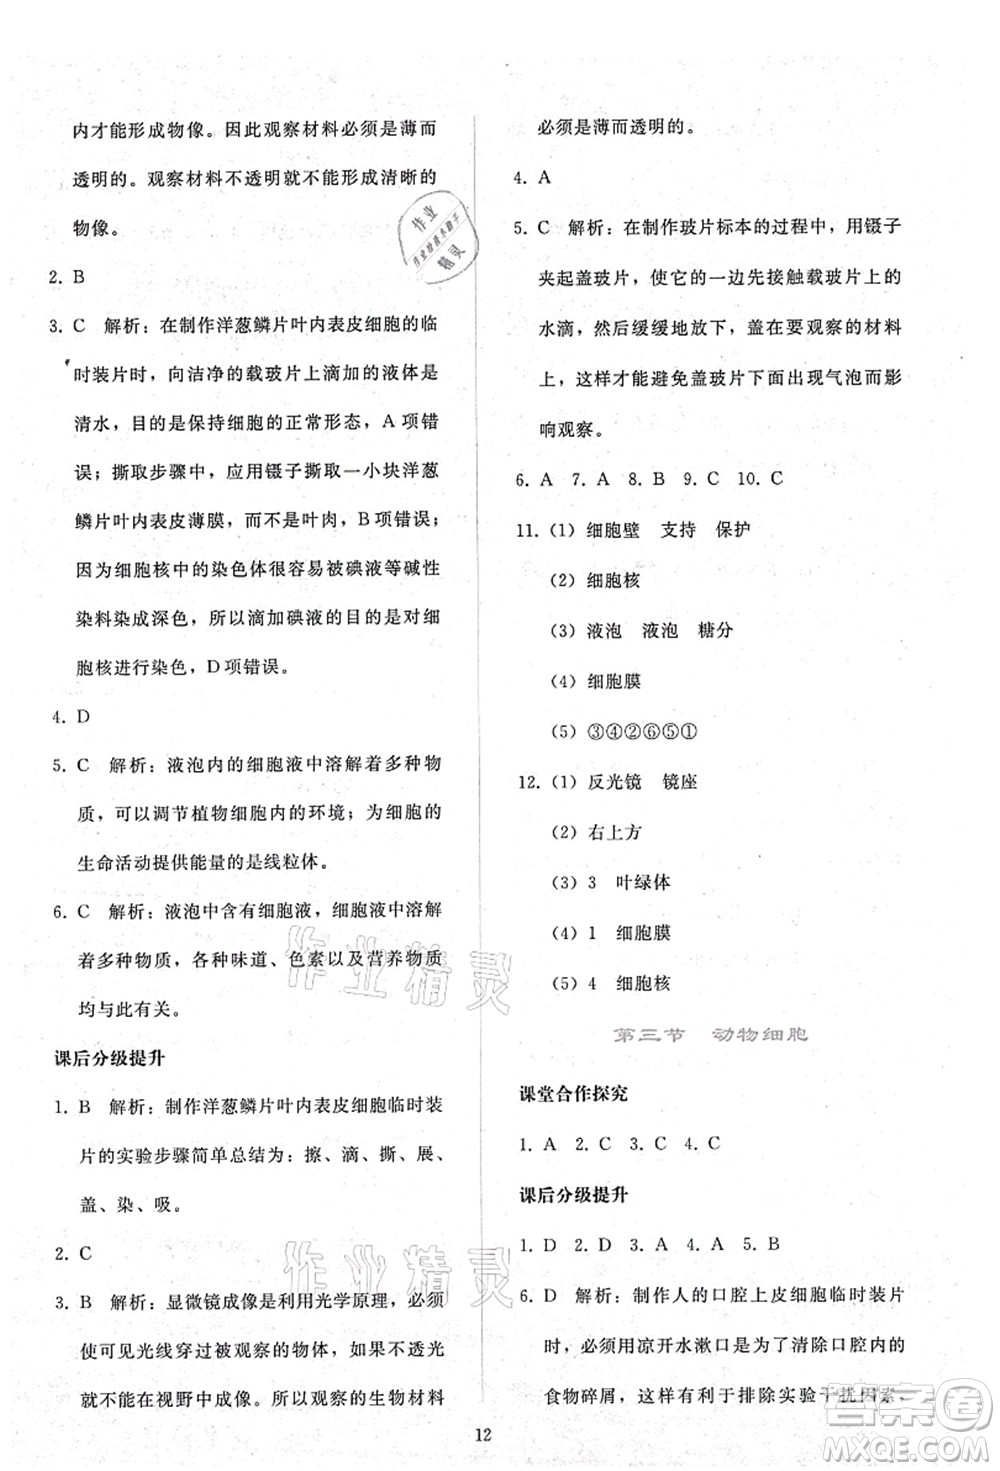 内才能形成物像。因此观察材料必须是薄而
透明的。观察材料不透明就不能形成清晰的
物像。
2. B
3. C 解析：在制作洋葱鳞片叶内表皮细胞的临
时装片时，向洁净的载玻片上滴加的液体是
清水，目的是保持细胞的正常形态，A 项错
误；撕取步骤中，应用镊子撕取一小块洋葱
鳞片叶内表皮薄膜，而不是叶肉，B 项错误；
因为细胞核中的染色体很容易被碘液等碱性
染料染成深色，所以滴加碘液的目的是对细
胞核进行染色，D 项错误。
4. D
5. C 解析：液泡内的细胞液中溶解着多种物
质，可以调节植物细胞内的环境；为细胞的
生命活动提供能量的是线粒体。
6. C 解析：液泡中含有细胞液，细胞液中溶解
着多种物质，各种味道、色素以及营养物质
均与此有关。
课后分级提升
1. B 解析：制作洋葱鳞片叶内表皮细胞临时装
片的实验步骤简单总结为：擦、滴、撕、展、
盖、染、吸。
2. C
3. B 解析：显微镜成像是利用光学原理，必须
使可见光线穿过被观察的物体，如果不透光
就不能在视野中成像。所以观察的生物材料
必须是薄而透明的。
4. A
5. C 解析：在制作玻片标本的过程中，用镊子
夹起盖玻片，使它的一边先接触载玻片上的
水滴，然后缓缓地放下，盖在要观察的材料
上，这样才能避免盖玻片下面出现气泡而影
响观察。
6. A 7. A 8. B 9. C 10. C
11. （1）细胞壁 支持 保护
（2）细胞核
（3）液泡 液泡 糖分
（4）细胞膜
（5）③④②⑥⑤①
12. （1）反光镜 镜座
（2）右上方
（3）3 叶绿体
（4）1 细胞膜
（5）4 细胞核
第三节 动物细胞
课堂合作探究
1. A 2. C 3. C 4. C
课后分级提升
1. D 2. D 3. A 4. A 5. B
6. D 解析：制作人的口腔上皮细胞临时装片
时，必须用凉开水漱口是为了清除口腔内的
食物碎屑，这样有利于排除实验干扰因素、
12
作业
作业检查小助手
精灵
作业精灵
作业精灵
答案圈
MXQE.COM